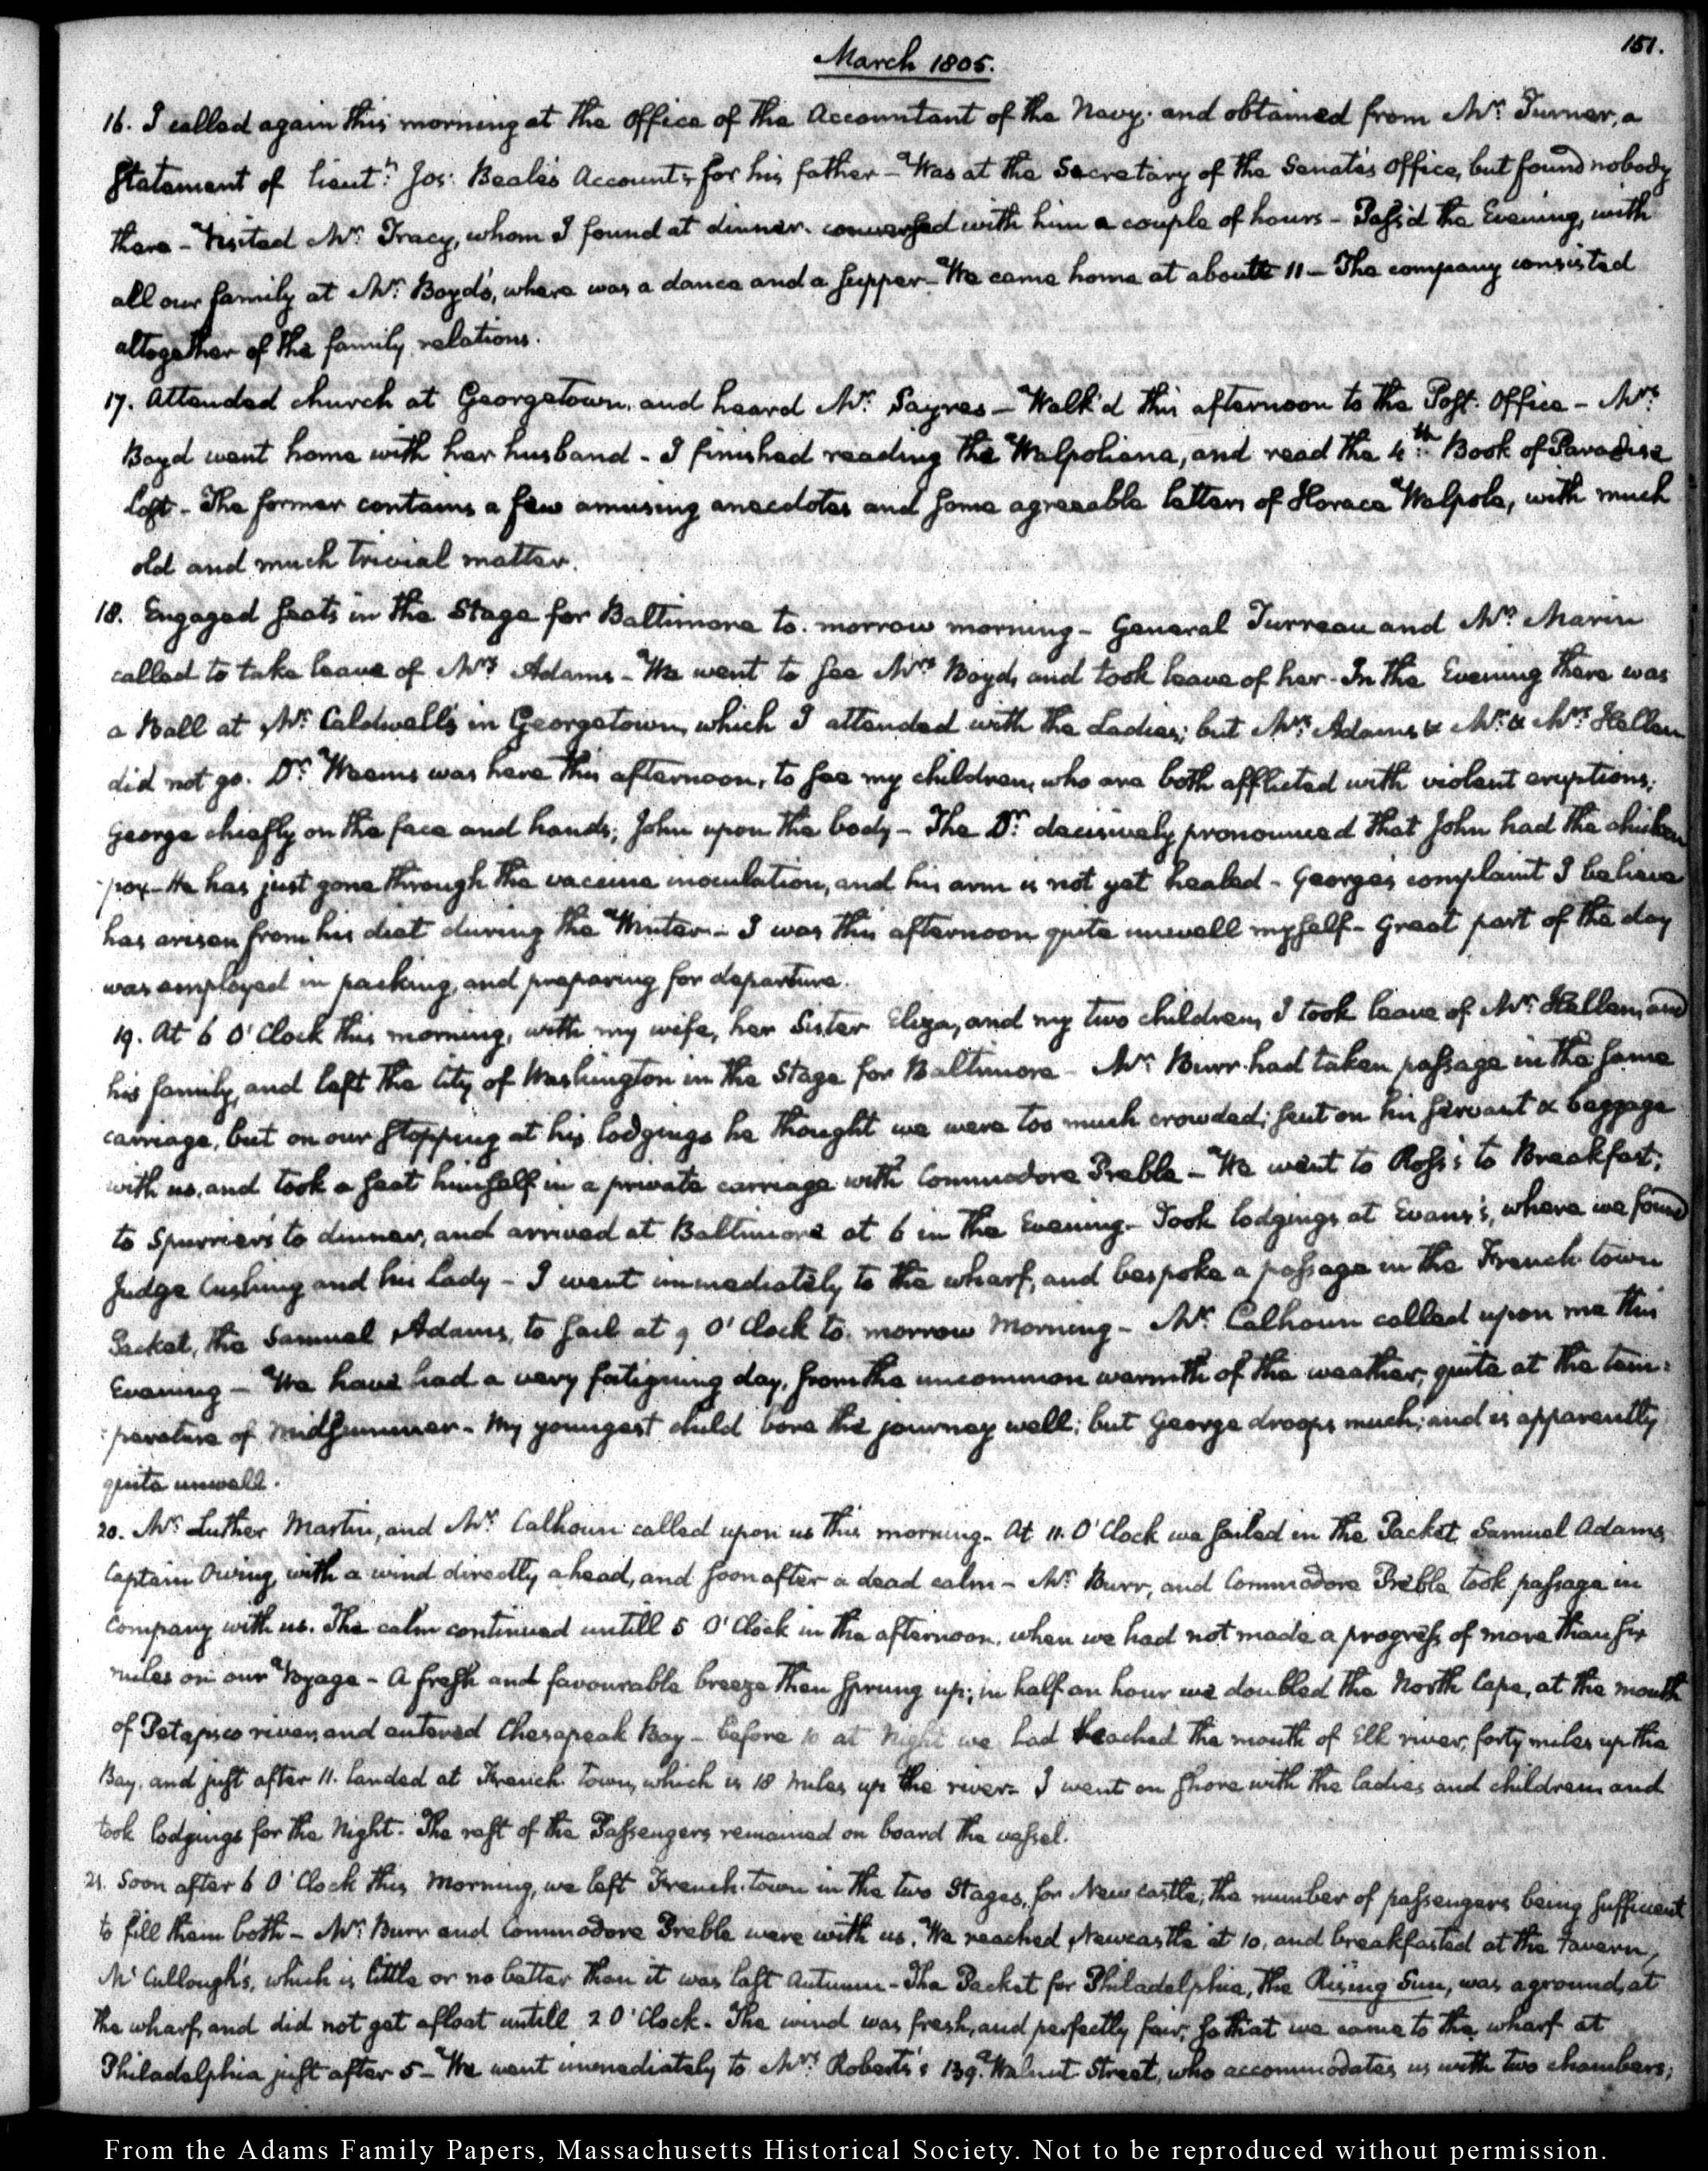 151.
March 1805.
16. I called again this morning at the Office of the Accountant of the Navy; and obtained from Mr. Turner, a
Statement of lieutt. Jos: Beale's Accounts for his father - Was at the Secretary of the Senate's Office, but found nobody
there - Visited Mr. Tracy, whom I found at dinner. conversed with him a couple of hours - Pass'd the Evening, with
all our family at Mr. Boyd's, where was a dance and a supper - We came home at about 11 - The company consisted
altogether of the family relations.
17. Attended church at Georgetown, and heard Mr. Sayres - Walk'd this afternoon to the Post-Office - Mrs.
Boyd went home with her husband - I finished reading the Walpoliana, and read the 4th. Book of Paradise
Lost - The former contains a few amusing anecdotes and some agreeable letters of Horace Walpole, with much
old and much trivial matter.
18. Engaged seats in the Stage for Baltimore to-morrow morning - General Turreau and Mr. Marin
called to take leave of Mrs. Adams - We went to see Mrs. Boyd, and took leave of her - In the Evening there was
a Ball at Mr. Caldwell's in Georgetown, which I attended with the Ladies; but Mrs. Adams & Mr. & Mrs. Hellen
did not go. Dr. Weems was here this afternoon, to see my children, who are both afflicted with violent eruptions;
George chiefly on the face and hands; John upon the body - The Dr. decisively pronounced that John had the chicken
-pox - He has just gone through the vaccine inoculation, and his arm is not yet healed - George's complaint I believe
has arisen from his diet during the Winter - I was this afternoon quite unwell myself - Great part of the day
was employed in packing, and preparing for departure.
19. At 6 O'Clock this morning, with my wife, her Sister Eliza, and my two children, I took leave of Mr. Hellen, and
his family, and left the City of Washington in the Stage for Baltimore - Mr. Burr had taken passage in the same
carriage, but on our stopping at his lodgings he thought we were too much crowded; sent on his servant & baggage
with us, and took a seat himself in a private carriage with Commodore Preble - We went to Ross's to Breakfast;
to Spurrier's to dinner, and arrived at Baltimore at 6 in the Evening - Took lodgings at Evans's, where we found
Judge Cushing and his Lady - I went immediately to the wharf, and bespoke a passage in the French-town
Packet, the Samuel Adams, to sail at 9 O'Clock to-morrow Morning - Mr. Calhoun called upon me this
Evening - We have had a very fatiguing day, from the uncommon warmth of the weather, quite at the tem:
:perature of midsummer - My youngest child bore the journey well; but George droops much; and is apparently
quite unwell.
20. Mr. Luther Martin, and Mr. Calhoun called upon us this morning - At 11. O'Clock we sailed in the Packet Samuel Adams,
Captain Owing, with a wind directly ahead, and soon after a dead calm - Mr. Burr, and Commodore Preble took passage in
Company with us. The calm continued untill 5 O'Clock in the afternoon, when we had not made a progress of more than six
miles on our Voyage - A fresh and favourable breeze then sprung up; in half an hour we doubled the North Cape, at the mouth
of Petapsco river, and entered Chesapeak Bay - before 10 at Night we had reached the mouth of Elk river, forty miles up the
Bay, and just after 11. landed at French-Town, which is 18 miles up the river - I went on shore with the ladies and children and
took lodgings for the Night - The rest of the Passengers remained on board the vessel.
21. Soon after 6 O'Clock this Morning, we left French-town in the two Stages, for Newcastle, the number of passengers being sufficient
to fill them both - Mr. Burr and Commodore Preble were with us. We reached Newcastle at 10, and breakfasted at the tavern,
McCullough's, which is little or no better than it was last Autumn - The Packet for Philadelphia, the Rising Sun, was aground, at
the wharf, and did not get afloat untill 2 O'Clock - The wind was fresh, and perfectly fair, so that we came to the wharf at
Philadelphia just after 5 - We went immediately to Mrs. Roberts's 139. Walnut-Street, who accommodates us with two chambers;
From the Adams Family Papers, Massachusetts Historical Society. Not to be reproduced without permission.